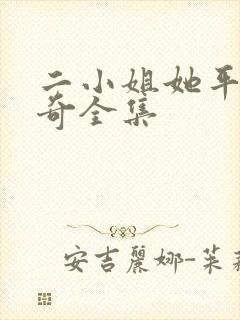 二小姐她平
奇全集
安吉麗娜-茱